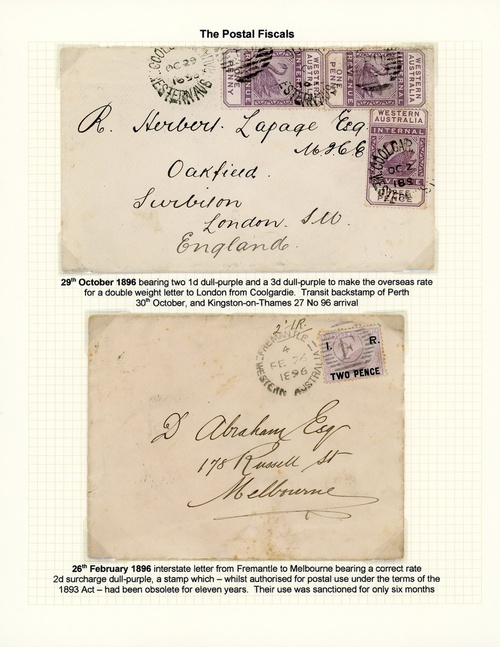 The Postal Fiscals
COOLGARDIE
OC 29
1896
WESTERN AUS
WESTERN
ONE
PENNY
REVENUE
WESTERN
AUSTRALIA
WESTERN
AUSTRALIA
INTERNAL
OC 2
189
REVENUE
THREE
PENCE
R. Herbert. Lapage Esq
M.I.C.E
Oakfield.
Surbiton
London. S.W
England.
29th October 1896 bearing two 1d dull-purple and a 3d dull-purple to make the overseas rate
for a double weight letter to London from Coolgardie. Transit backstamp of Perth
30th October, and Kingston-on-Thames 27 No 96 arrival
FREMANTLE
4
FE 26
1896
WESTERN AUSTRALIA
I. R.
TWO PENCE
D Abraham Esq
178 Russell St
Melbourne
26th February 1896 interstate letter from Fremantle to Melbourne bearing a correct rate
2d surcharge dull-purple, a stamp which – whilst authorised for postal use under the terms of the
1893 Act – had been obsolete for eleven years. Their use was sanctioned for only six months